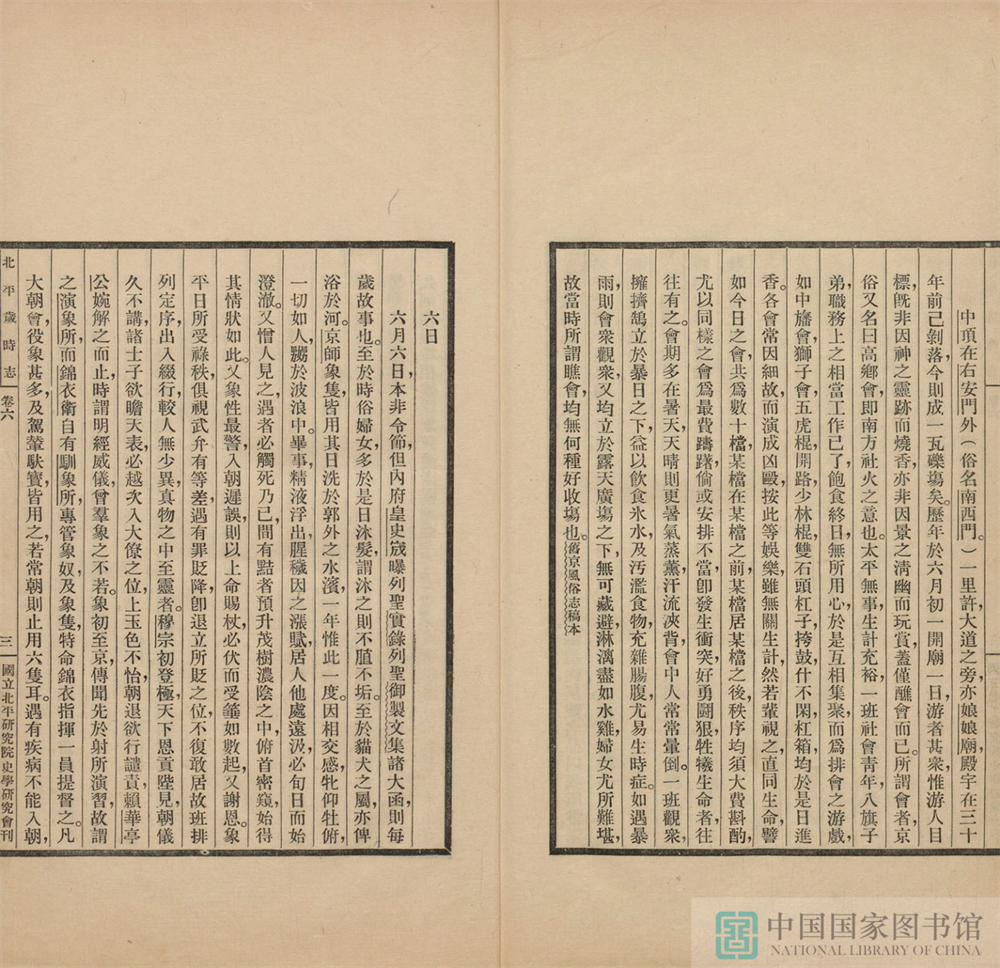 中頂在右安門外（俗名南西門。）一里許大道之旁，亦娘娘廟，殿宇在三十
年前已剝落，今則成一瓦礫塲矣。歷年於六月初一開廟一日，游者甚衆，惟游人目
標，旣非因神之靈跡而燒香，亦非因景之清幽而玩賞，蓋僅醮會而已。所謂會者，京
俗又名曰高鄉會，卽南方社火之意也。太平無事，生計充裕，一班社會青年，八旗子
弟，職務上之相當工作已了，飽食終日，無所用心，於是互相集聚而爲排會之游戲，
如中旛會獅子會五虎棍開路少林棍雙石頭杠子挎鼓什不閑杠箱，均於是日進
香。各會常因細故，而演成凶毆，按此等娛樂，雖無關生計，然若輩視之，直同生命，譬
如今日之會，共爲數十檔，某檔在某檔之前，某檔居某檔之後，秩序均須大費斟酌，
尤以同樣之會，爲最費躊躇，倘或安排不當，卽發生衝突，好勇鬪狠，牲犧生命者，往
往有之。會期多在暑天，天晴則更暑氣蒸薰，汗流浹背，會中人常常暈倒。一班觀衆，
擁擠鵠立於暴日之下，益以飲食氷水，及汚濫食物，充雜腸腹，尤易生時症。如遇暴
雨，則會衆觀衆，又均立於露天廣塲之下，無可藏避，淋漓盡如水雞，婦女尤所難堪，
故當時所謂瞧會，均無何種好收塲也。舊京風俗志稿本
六日
六月六日，本非令節，但內府皇史宬曝列聖實錄列聖御製文集諸大函，則每
歲故事也。至於時俗，婦女多於是日沐髮，謂沐之則不䐈不垢。至於貓犬之屬，亦俾
浴於河。京師象隻，皆用其日洗於郭外之水濱，一年惟此一度。因相交感，牝仰牡俯，
一切如人，嬲於波浪中。畢事精液浮出，腥穢因之漲膩，居人他處遠汲，必旬日而始
澄澈。又憎人見之，遇者必觸死乃已，間有黠者預升茂樹濃陰之中，俯首密窺，始得
其情狀如此。又象性最警，入朝遲誤，則以上命賜杖，必伏而受箠如數，起又謝恩。象
平日所受祿秩，俱視武弁有等差，遇有罪貶降，卽退立所貶之位，不復敢居故班，排
列定序，出入綴行，較人無少異，真物之中至靈者。穆宗初登極，天下恩貢陛見，朝儀
久不講，諸士子欲瞻天表，必越次入大僚之位，上玉色不怡，朝退欲行譴責，賴華亭
公婉解之而止，時謂明經威儀，曾羣象之不若。象初至京，傳聞先於射所演習，故謂
之演象所，而錦衣衛自有馴象所，專管象奴及象隻，特命錦衣指揮一員提督之。凡
大朝會，役象甚多，及駕輦馱寶，皆用之，若常朝則止用六隻耳。遇有疾病不能入朝，
北平歲時志 卷六
三 國立北平研究院史學研究會刊
中国国家图书馆
NATIONAL LIBRARY OF CHINA